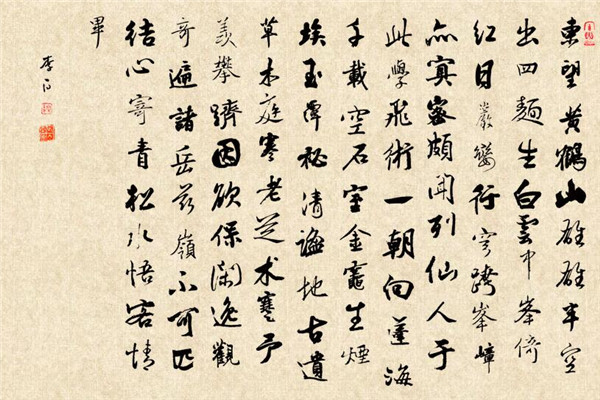 東望黄鶴山雄雄半空
出四麵生白雲中峯倚
紅日巖巒行穹跨峯嶂
亦冥密頗闻列仙人于
此學飛術一朝向蓬海
千載空石室金竈生煙
埃玉潭秘清謐地古遺
草木庭寒老芝术蹇予
羨攀躋因欲保闲逸觀
奇遍諸岳兹嶺不可匹
结心寄青松永悟客情
畢
李白